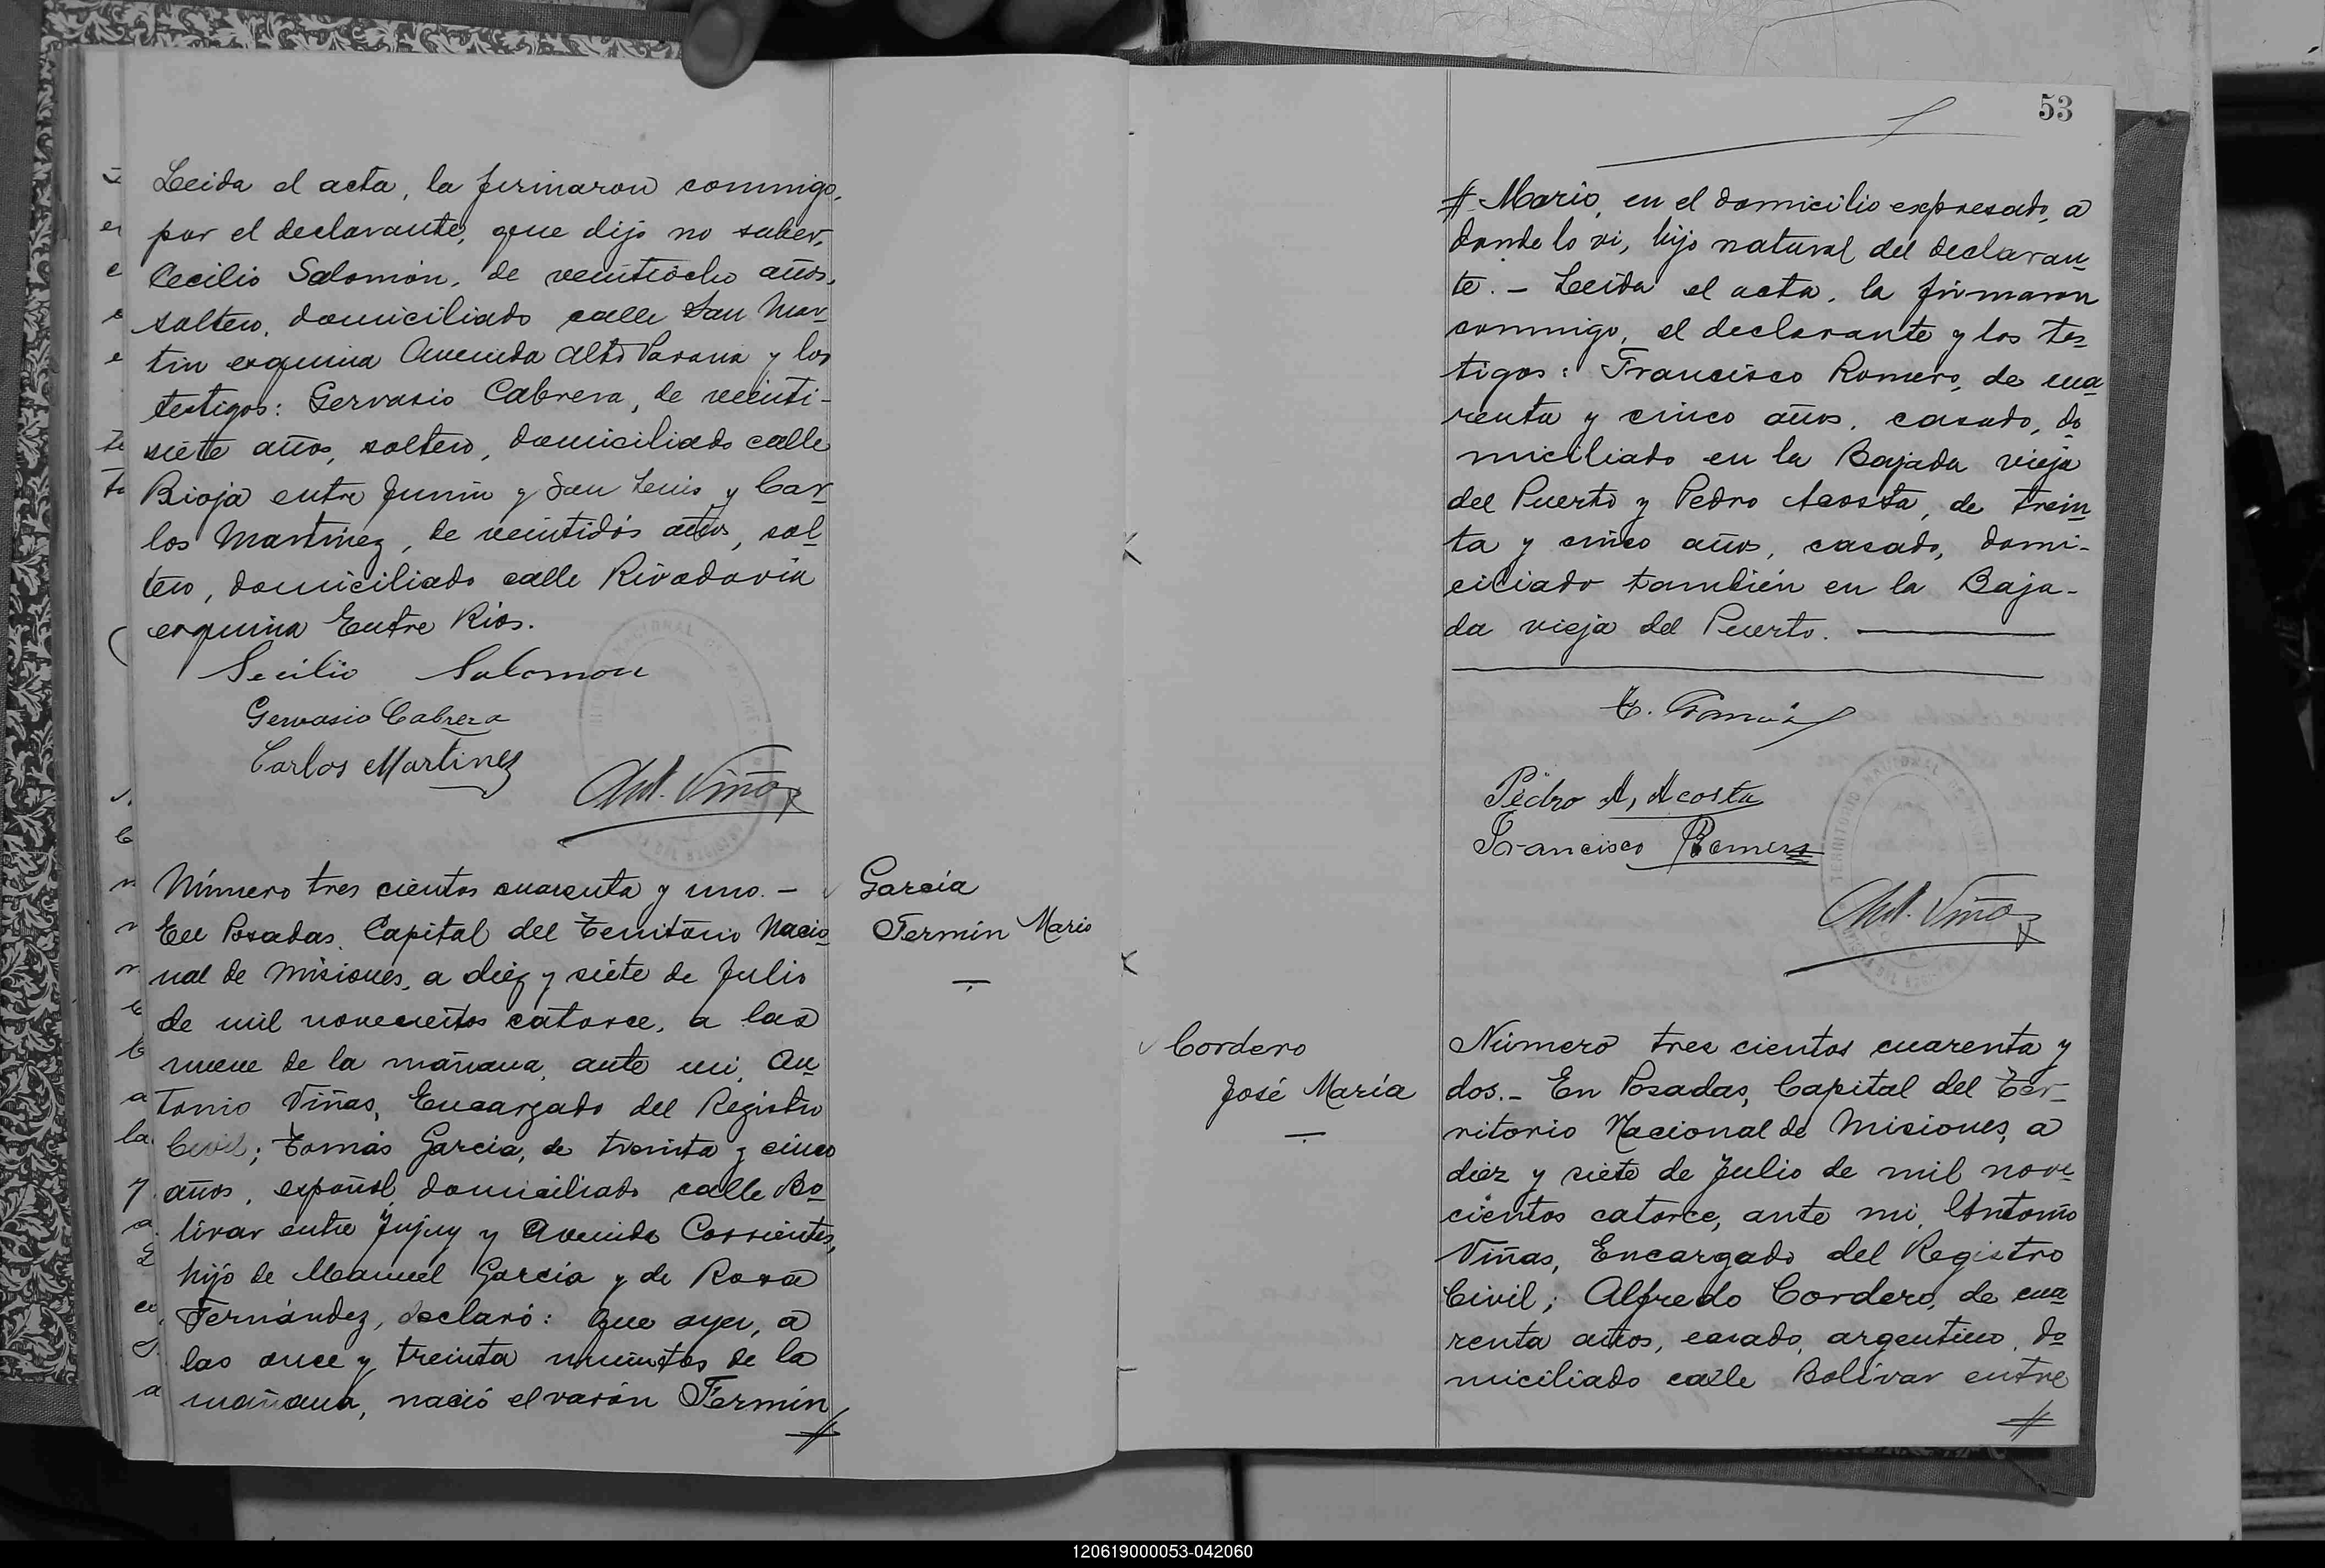 Leida el acta, la firmaron conmigo,
por el declarante, que dijo no saber,
Cecilio Salomón, de veintiocho años,
soltero, domiciliado calle San Mar
tin esquina Avenida Alto Parana y los
testigos: Gervasio Cabrera, de veinti-
siete años, soltero, domiciliado calle
Rioja entre Junin y San Luis y Car
los Martinez, de veintidós años, sol
tero, domiciliado calle Rivadavia
esquina Entre Rios.
Secilio Salomon
Gervasio Cabrera
Carlos Martinez
Ant. Viñas
Número tres cientos cuarenta y uno. -
En Posadas, Capital del Territorio Nacio
nal de Misiones, a diez y siete de Julio
de mil novecientos catorce, a las
nueve de la mañana, ante mi, An
tonio Viñas, Encargado del Registro
Civil; Tomás Garcia, de treinta y cinco
años, español, domiciliado calle Bo
livar entre Jujuy y Avenida Corrientes,
hijo de Manuel Garcia y de Rosa
Fernández, declaró: Que ayer, a
las once y treinta minutos de la
mañana, nació el varón Fermin
#
García
Fermin Mario
53
# Mario, en el domicilio expresado, a
donde lo vi, hijo natural del declaran
te. - Leida el acta, la firmaron
conmigo, el declarante y los tes
tigos: Francisco Romero, de cua
renta y cinco años, casado, do
miciliado en la Bajada vieja
del Puerto y Pedro Acosta, de trein
ta y cinco años, casado, domi-
ciliado también en la Baja-
da vieja del Puerto.
T. García
Pedro A. Acosta
Francisco Romero
Ant. Viñas
Cordero
José María
Número tres cientos cuarenta y
dos. - En Posadas, Capital del Ter-
ritorio Nacional de Misiones, a
diez y siete de Julio de mil nove
cientos catorce, ante mi, Antonio
Viñas, Encargado del Registro
Civil; Alfredo Cordero, de cua
renta años, casado, argentino, do
miciliado calle Bolívar entre
#
120619000053-042060